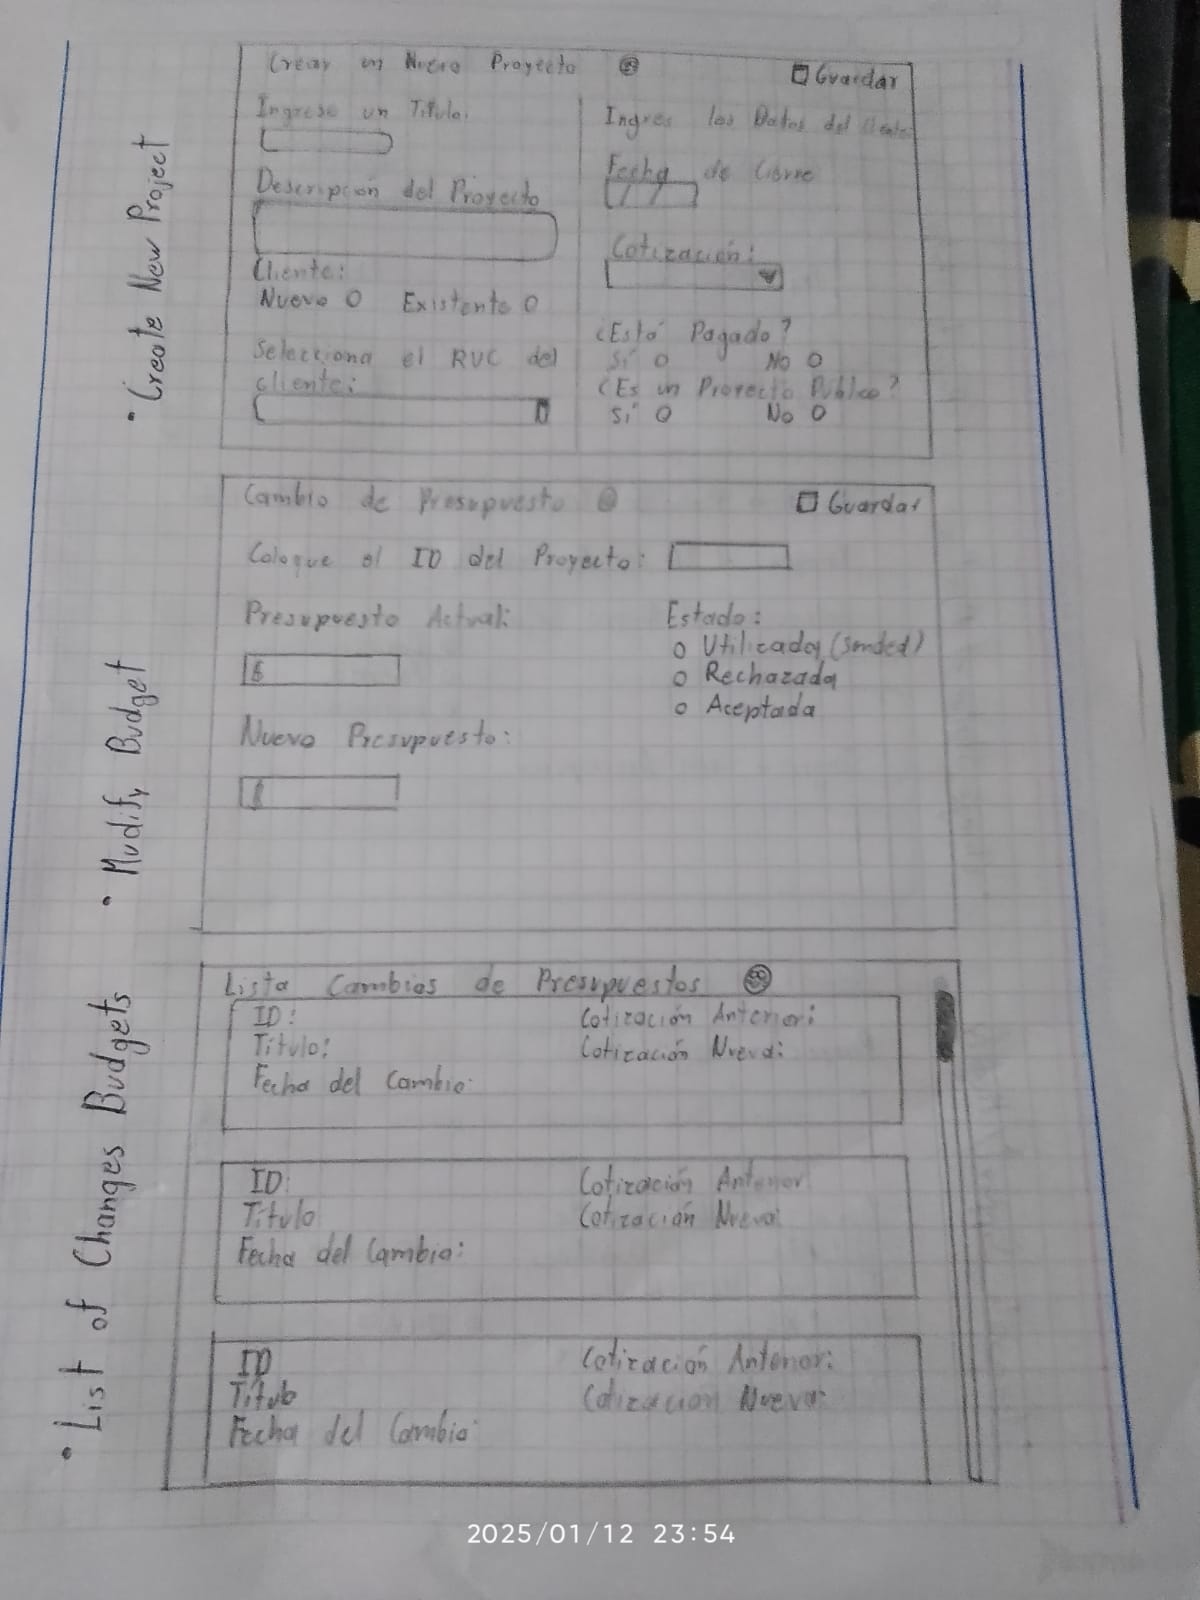 • Create New Project
Crear un Nuevo Proyecto
Guardar
Ingrese un Título:
Descripción del Proyecto
Cliente:
Nuevo O Existente O
Selecciona el RUC del
cliente:
Ingres los Datos del
Fecha de Cierre
/ /
Cotización:
¿Está Pagado?
Sí O No O
¿Es un Proyecto Público?
Sí O No O
• Modify Budget
Cambio de Presupuesto
Guardar
Coloque el ID del Proyecto:
Presupuesto Actual:
Nuevo Presupuesto:
Estado:
o Utilizada (Sended)
o Rechazada
o Aceptada
• List of Changes Budgets
Lista Cambios de Presupuestos
ID:
Título:
Fecha del Cambio:
Cotización Anterior:
Cotización Nueva:
ID:
Título
Fecha del Cambio:
Cotización Anterior
Cotización Nueva:
ID
Título
Fecha del Cambio:
Cotización Anterior:
Cotización Nueva:
2025/01/12 23:54